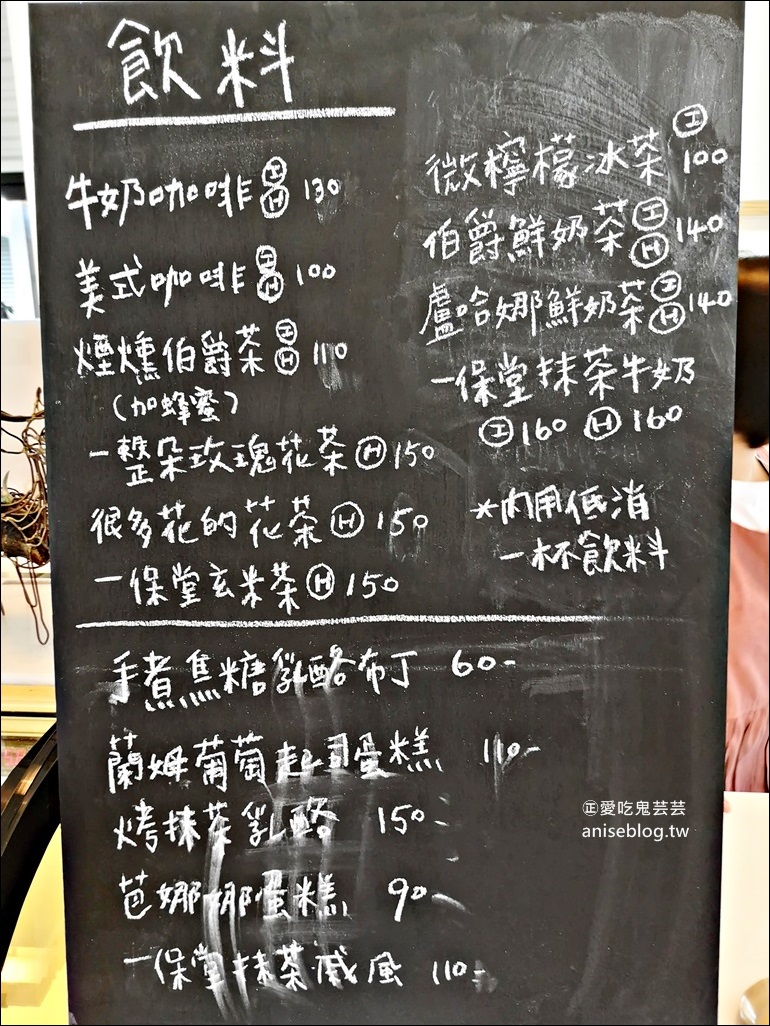 飲料
牛奶咖啡 I H 130
美式咖啡 I H 100
煙燻伯爵茶 I H 110
(加蜂蜜)
一整朵玫瑰花茶 H 150
很多花的花茶 H 150
一保堂玄米茶 H 150
微檸檬冰茶 I 100
伯爵鮮奶茶 I H 140
盧哈娜鮮奶茶 I H 140
一保堂抹茶牛奶
I 160 H 160
*內用低消
一杯飲料
手煮焦糖乳酪布丁 60-
蘭姆葡萄起司蛋糕 110-
烤抹茶乳酪 150-
芭娜娜蛋糕 90-
一保堂抹茶戚風 110-
正愛吃鬼芸芸
aniseblog.tw